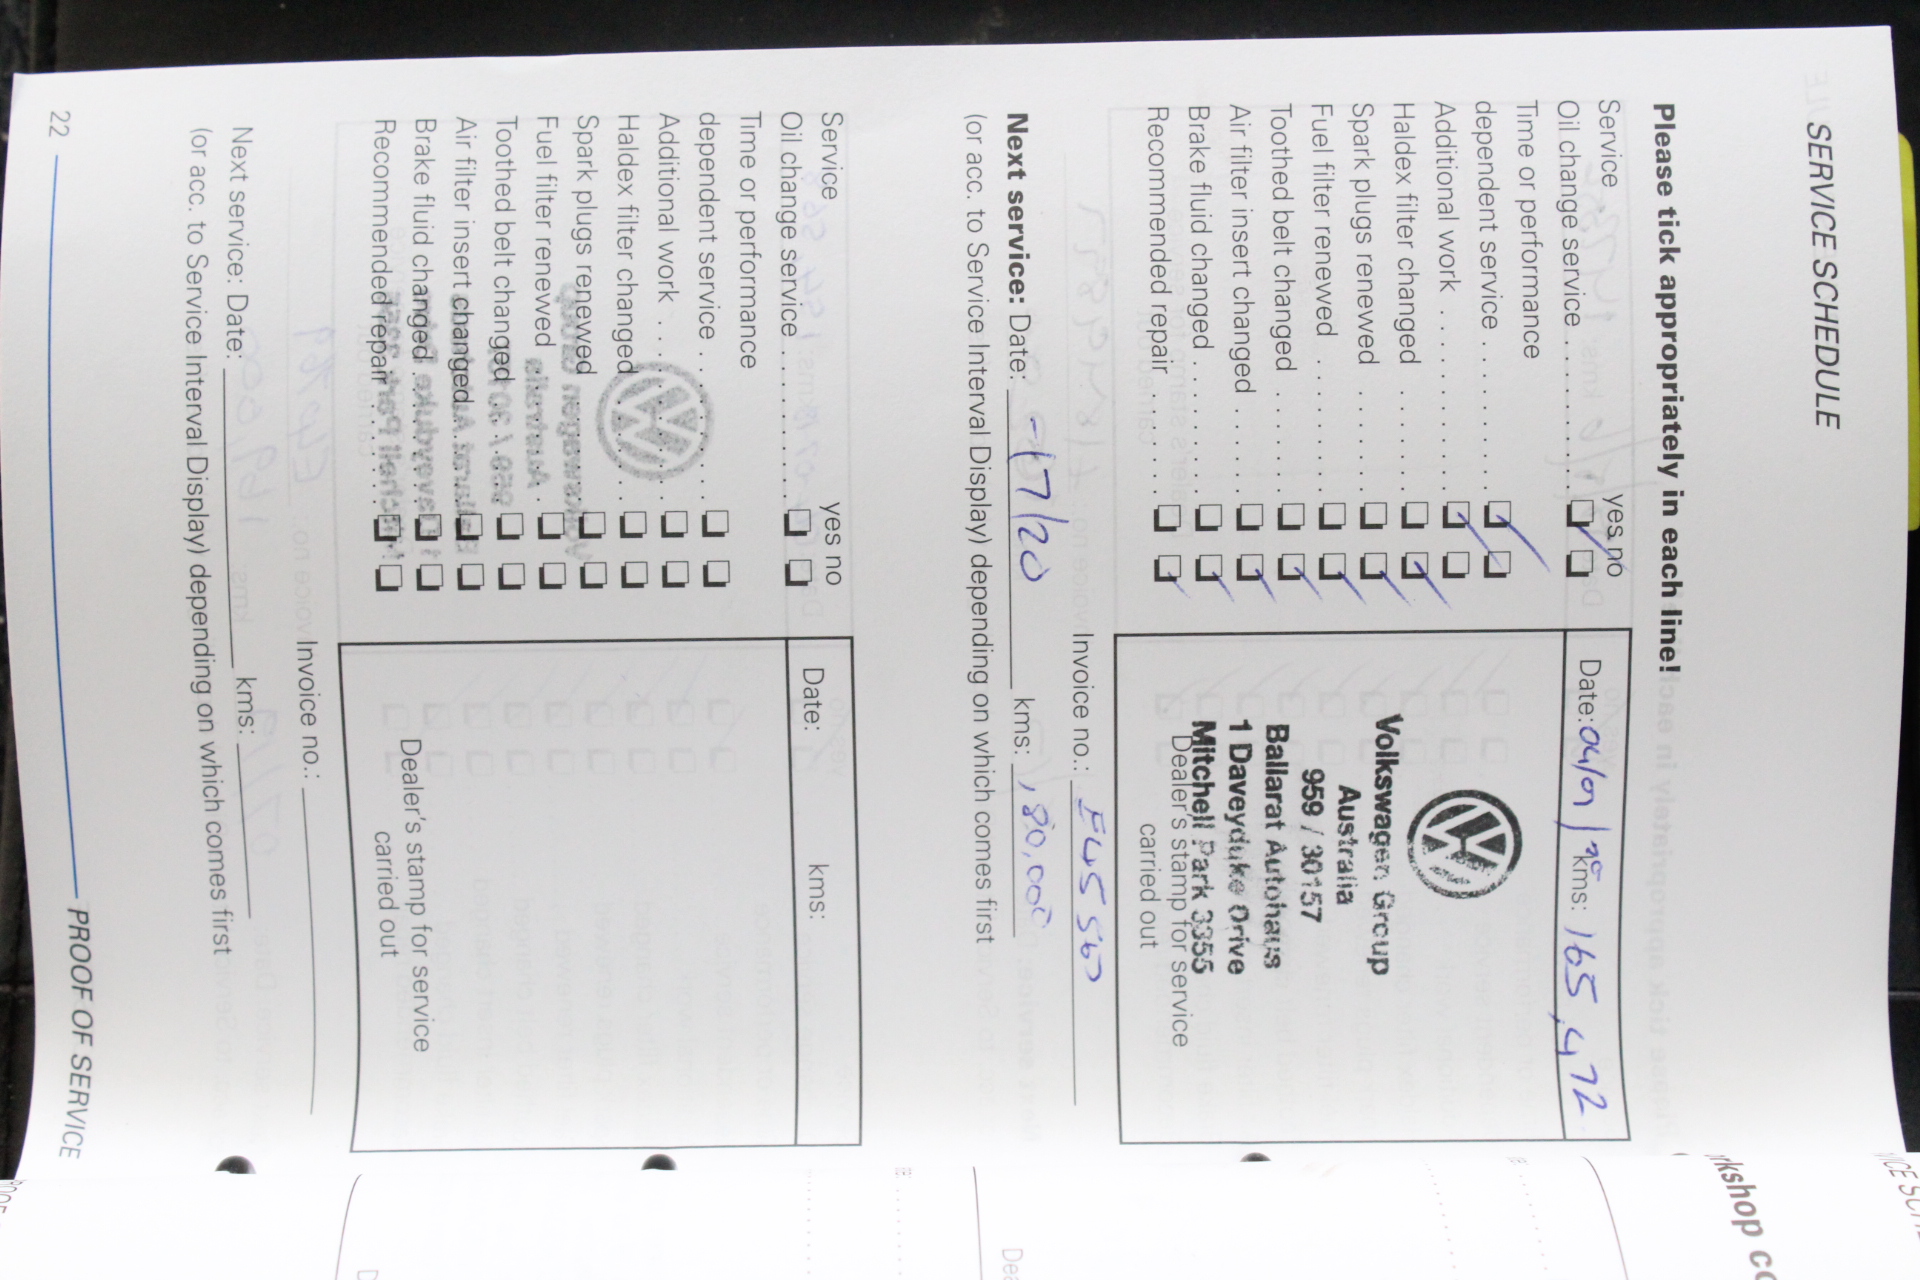 SERVICE SCHEDULE
Please tick appropriately in each line!
Service yes no
Oil change service
Time or performance
dependent service
Additional work
Haldex filter changed
Spark plugs renewed
Fuel filter renewed
Toothed belt changed
Air filter insert changed
Brake fluid changed
Recommended repair
Date: kms: 165,472
Volkswagen Group
Australia
959 / 30157
Ballarat Autohaus
1 Daveyduke Drive
Mitchell Park 3355
Dealer's stamp for service
carried out
Invoice no.:
Next service: Date: -/7/20 kms: 180,000
(or acc. to Service Interval Display) depending on which comes first
Service yes no
Oil change service
Time or performance
dependent service
Additional work
Haldex filter changed
Spark plugs renewed
Fuel filter renewed
Toothed belt changed
Air filter insert changed
Brake fluid changed
Recommended repair
Date: kms:
Dealer's stamp for service
carried out
Invoice no.:
Next service: Date: kms:
(or acc. to Service Interval Display) depending on which comes first
22 PROOF OF SERVICE